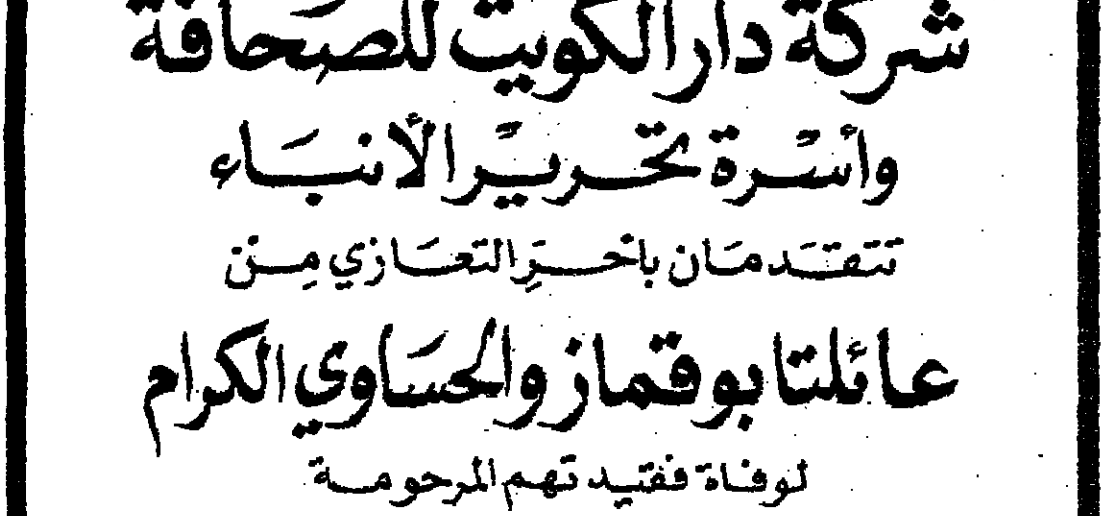 شركة دار الكويت للصحافة
وأسرة تحرير الأنباء
تتقدمان بأحر التعازي من
عائلتا بوقماز والحساوي الكرام
لوفاة فقيدتهم المرحومة